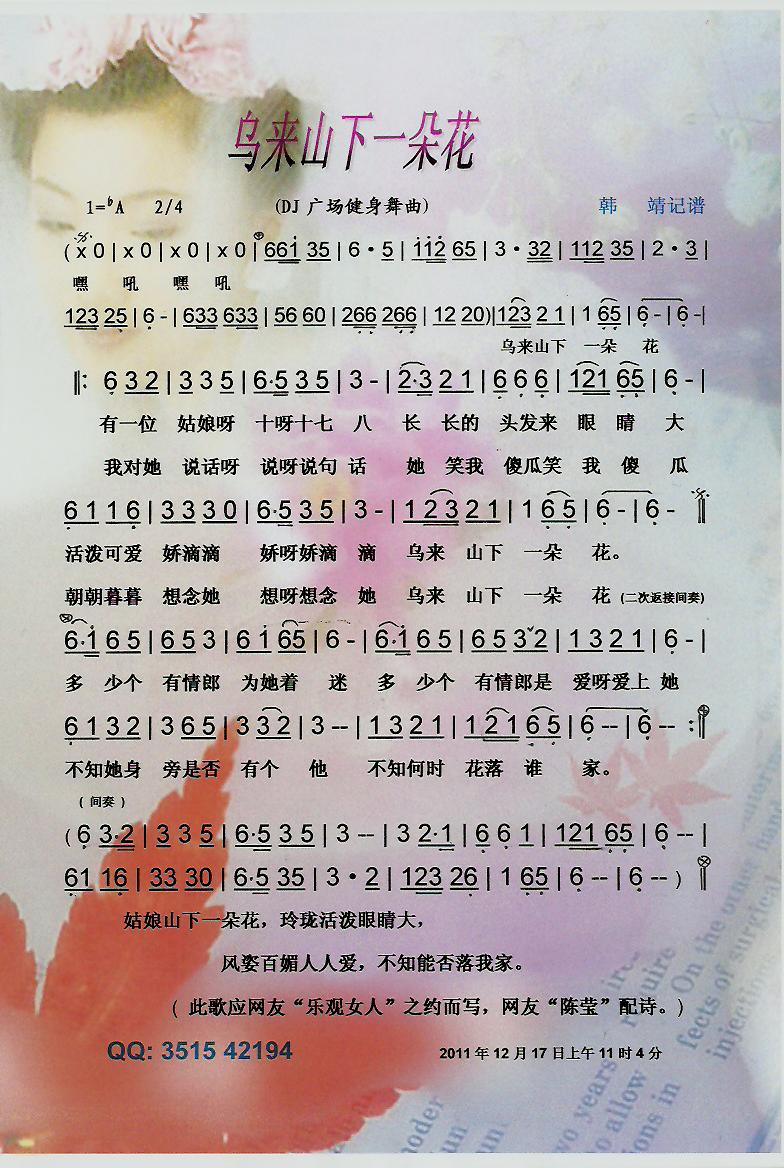 乌来山下一朵花
1=♭A 2/4 (DJ 广场健身舞曲) 韩 靖记谱
( x 0 | x 0 | x 0 | x 0 | 661 35 | 6 · 5 | 112 65 | 3 · 32 | 112 35 | 2 · 3 |
嘿 吼 嘿 吼
123 25 | 6 - | 633 633 | 56 60 | 266 266 | 12 20 )| 123 2 1 | 1 65 | 6 - | 6 - |
乌来山下 一朵 花
‖: 6 3 2 | 3 3 5 | 6·5 3 5 | 3 - | 2·3 2 1 | 6 6 6 | 121 65 | 6 - |
有一位 姑娘呀 十呀十七 八 长 长的 头发来 眼 睛 大
我对她 说话呀 说呀说句 话 她 笑我 傻瓜笑 我 傻 瓜
6 1 1 6 | 3 3 3 0 | 6·5 3 5 | 3 - | 1 2 3 2 1 | 1 6 5 | 6 - | 6 - ‖
活泼可爱 娇滴滴 娇呀娇滴 滴 乌来 山下 一朵 花。
朝朝暮暮 想念她 想呀想念 她 乌来 山下 一朵 花 (二次返接间奏)
6·1 6 5 | 6 5 3 | 6 1 65 | 6 - | 6·1 6 5 | 6 5 3 2 | 1 3 2 1 | 6 - |
多 少个 有情郎 为她着 迷 多 少个 有情郎是 爱呀爱上 她
6 1 3 2 | 3 6 5 | 3 3 2 | 3 -- | 1 3 2 1 | 1 2 1 6 5 | 6 -- | 6 -- :‖
不知她身 旁是否 有个 他 不知何时 花落 谁 家。
( 间奏 )
( 6 3·2 | 3 3 5 | 6·5 3 5 | 3 -- | 3 2·1 | 6 6 1 | 121 65 | 6 -- |
61 16 | 33 30 | 6·5 35 | 3 · 2 | 123 26 | 1 65 | 6 -- | 6 -- ) ‖
姑娘山下一朵花，玲珑活泼眼睛大，
风姿百媚人人爱，不知能否落我家。
( 此歌应网友“乐观女人”之约而写，网友“陈莹”配诗。)
QQ: 3515 42194 2011 年 12 月 17 日上午 11 时 4 分